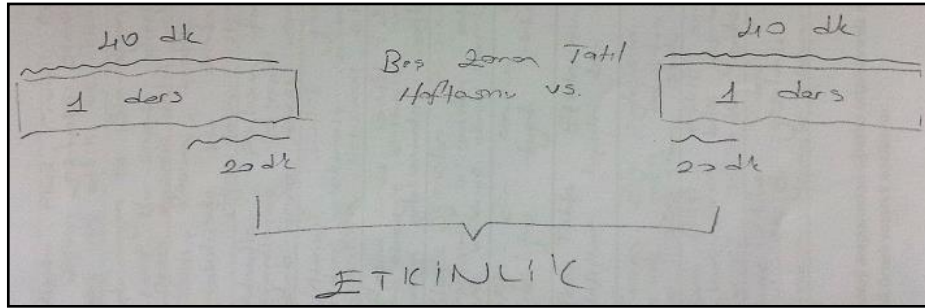 40 dk
1 ders
20 dk
Boş zaman Tatil
Haftasonu vs.
40 dk
1 ders
20 dk
ETKİNLİK